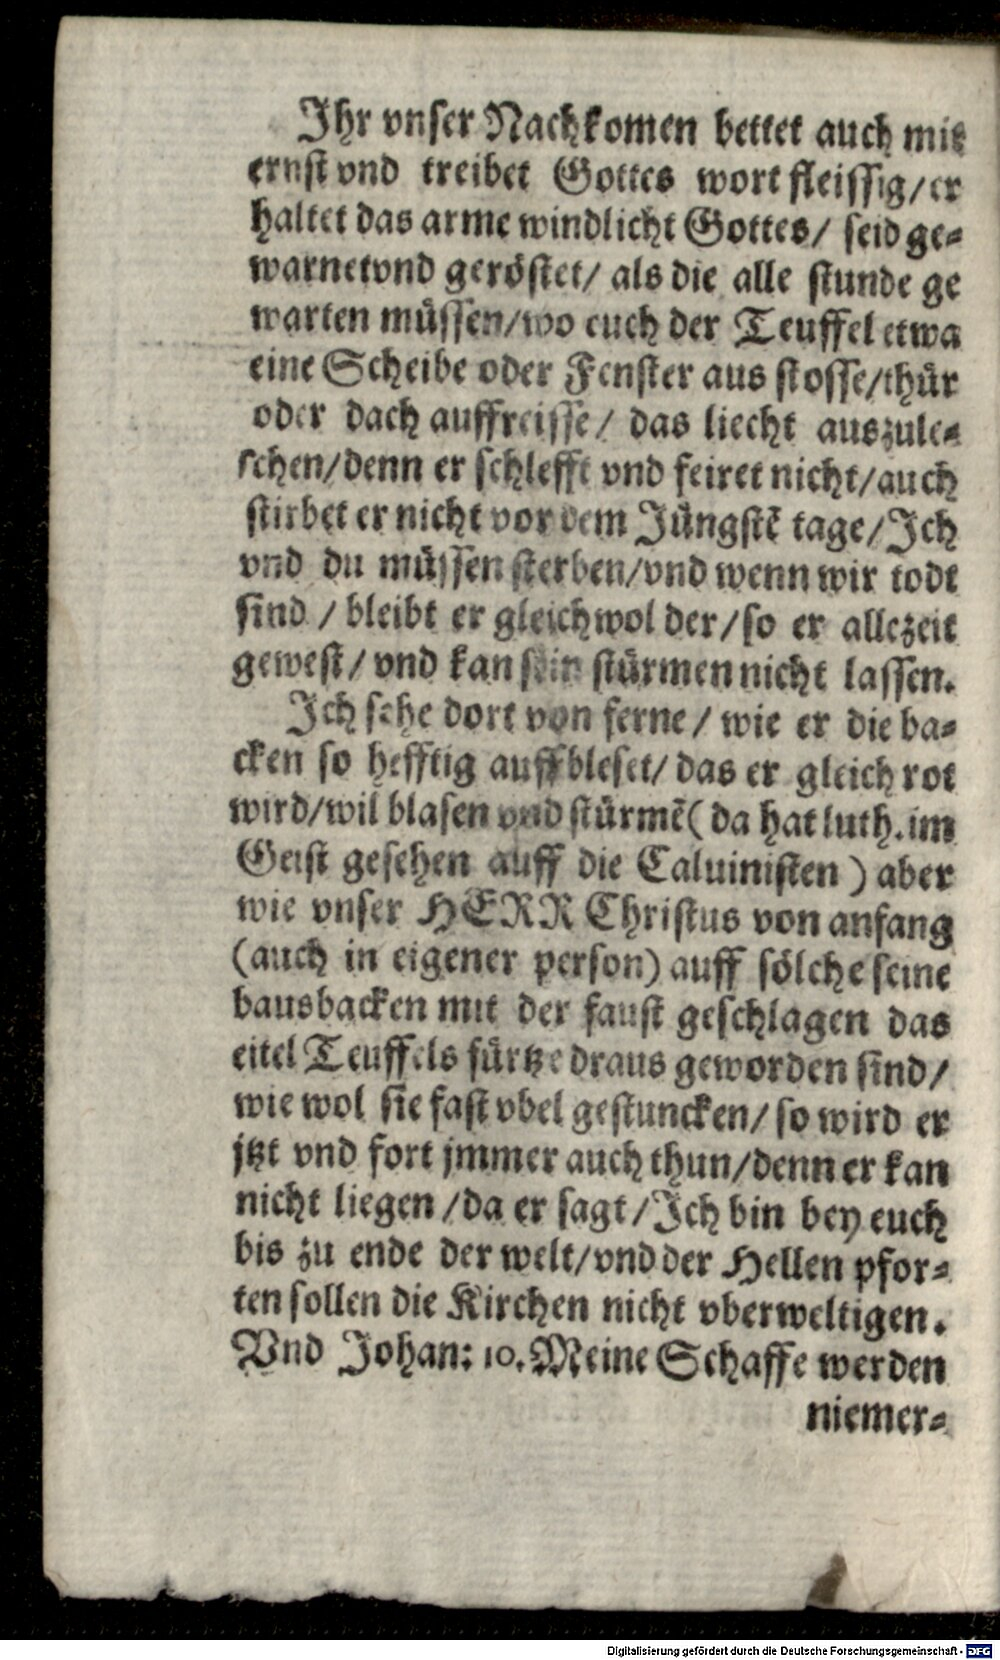 Ihr vnser Nachkomen bettet auch mit
ernst vnd treibet Gottes wort fleissig/er
haltet das arme windlicht Gottes/ seid ge-
warnet vnd geröstet/ als die alle stunde ge
warten müssen/wo euch der Teuffel etwa
eine Scheibe oder Fenster aus stosse/thür
oder dach auffreisse/ das liecht auszule-
schen/denn er schlefft vnd feiret nicht/auch
stirbet er nicht vor dem Jüngstẽ tage/Ich
vnd du müssen sterben/vnd wenn wir todt
sind / bleibt er gleichwol der/so er allezeit
gewest/ vnd kan sein stürmen nicht lassen.
Ich sehe dort von ferne/ wie er die ba-
cken so hefftig auffbleset/ das er gleich rot
wird/wil blasen vnd stürmẽ( da hat luth. im
Geist gesehen auff die Caluinisten ) aber
wie vnser HERR Christus von anfang
(auch in eigener person) auff sölche seine
bausbacken mit der faust geschlagen das
eitel Teuffels fürtze draus geworden sind/
wie wol sie fast vbel gestuncken/ so wird er
jtzt vnd fort jmmer auch thun/denn er kan
nicht liegen /da er sagt/Ich bin bey euch
bis zu ende der welt/vnd der Hellen pfor-
ten sollen die Kirchen nicht vberweltigen.
Vnd Johan: 10. Meine Schaffe werden
niemer-
Digitalisierung gefördert durch die Deutsche Forschungsgemeinschaft - DFG